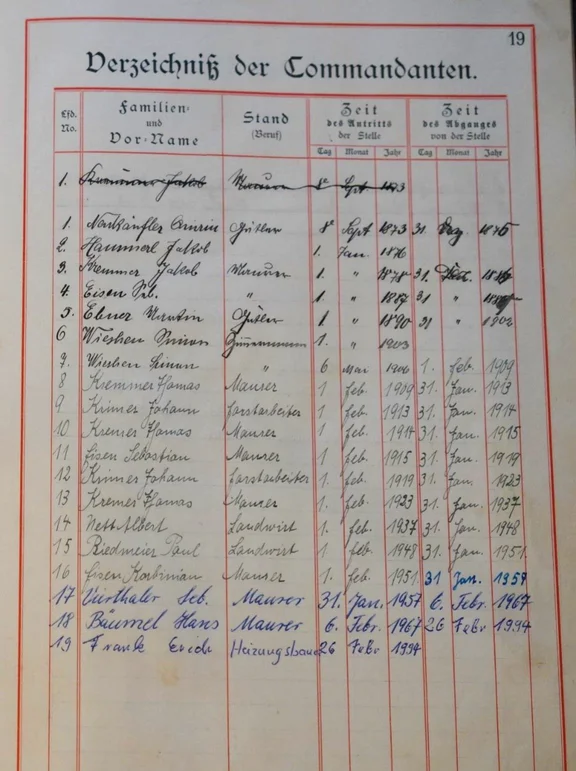 19
Verzeichniß der Commandanten.
Lfd. No. Familien- und Vor-Name Stand (Beruf) Zeit des Antritts der Stelle Zeit des Abganges von der Stelle
Tag Monat Jahr Tag Monat Jahr
1. Jakob Maurer 8t Sept 1873
1. 8t Sept 1873 31. Dez. 1875
2. Hammerl Jakob 1. Jan. 1876
3. Kremmer Jakob Maurer 1. " 1878 31. Dez.
4. Eisen Seb. " 1 " 1887 31 "
5. Ebner Martin Gütler 1 " 1890 31 " 1902
6 Simon Zimmermann 1. " 1903
7. Simon " 6 Mai 1906 1. Feb. 1909
8 Kremmer Thomas Maurer 1 Feb. 1909 31. Jan. 1913
9 Johann Forstarbeiter 1 Feb. 1913 31. Jan. 1914
10 Kremer Thomas Maurer 1 Feb. 1914 31. Jan. 1915
11 Eisen Sebastian Maurer 1 Feb. 1915 31. Jan. 1919
12 Johann Forstarbeiter 1 Feb. 1919 31. Jan. 1923
13 Kremer Thomas Maurer 1. Feb. 1923 31. Jan. 1937
14 Nett Albert Landwirt 1. Feb. 1937 31. Jan. 1948
15 Riedmeier Paul Landwirt 1 Feb. 1948 31. Jan. 1951.
16 Eisen Korbinian Maurer 1. Feb. 1951. 31 Jan.
17 Vierthaler Seb. Maurer 31. Jan. 1957 6. Febr. 1967
18 Bäumel Hans Maurer 6. Febr. 1967 26 Febr 1994
19 Frank Erich Heizungsbauer 26 Febr 1994